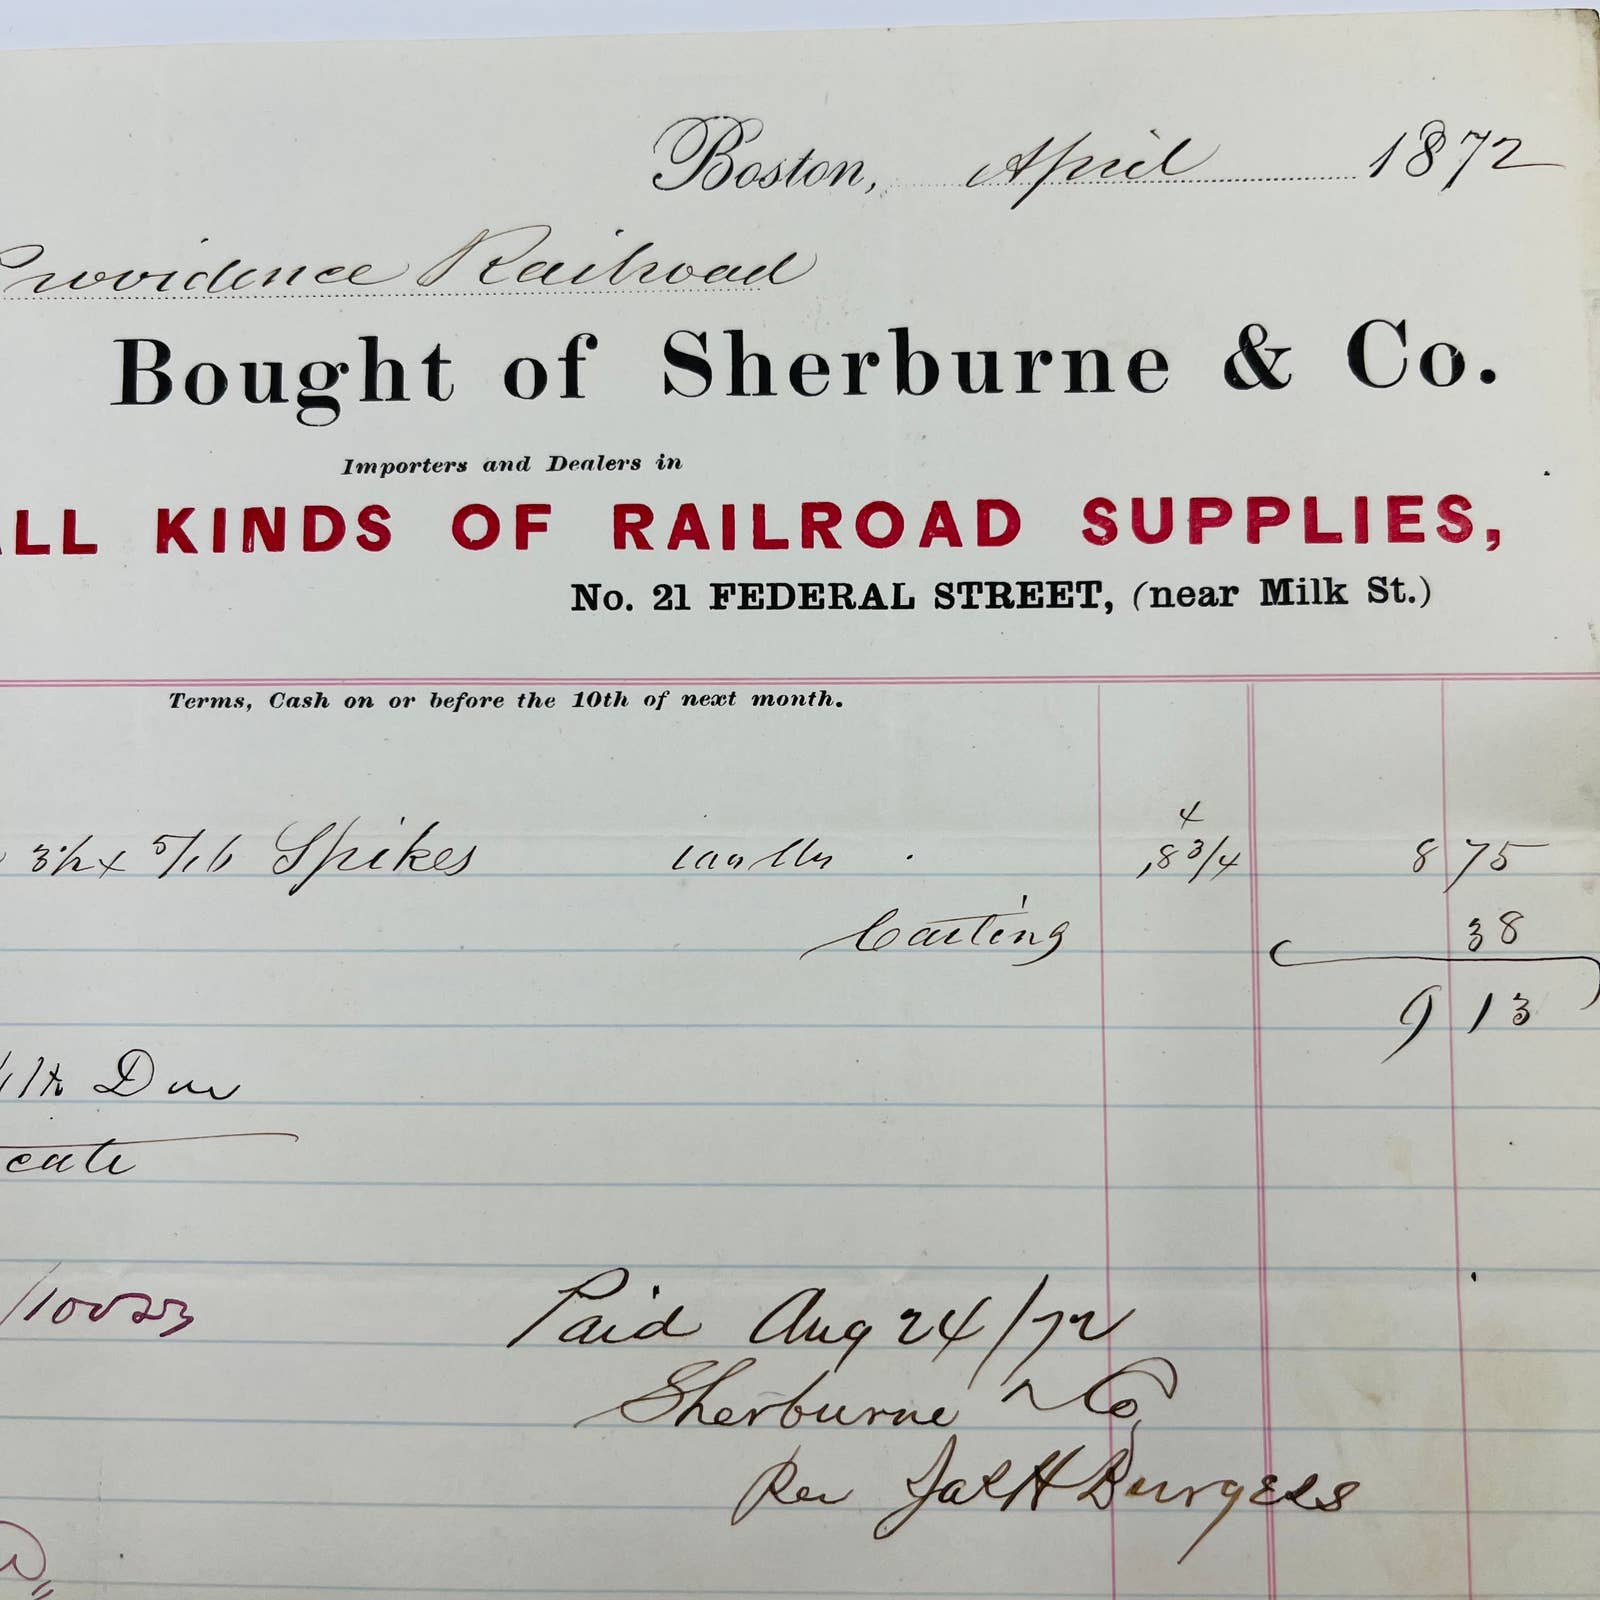 Boston, April 1872
Providence Railroad
Bought of Sherburne & Co.
Importers and Dealers in
ALL KINDS OF RAILROAD SUPPLIES,
No. 21 FEDERAL STREET, (near Milk St.)
Terms, Cash on or before the 10th of next month.
4
3½ x 5/16 Spikes 100 lbs ,8 3/4 8 75
Carting 38
9 13
Due
cate
Paid Aug 24/72
Sherburne & Co
Per Jas H Burgess